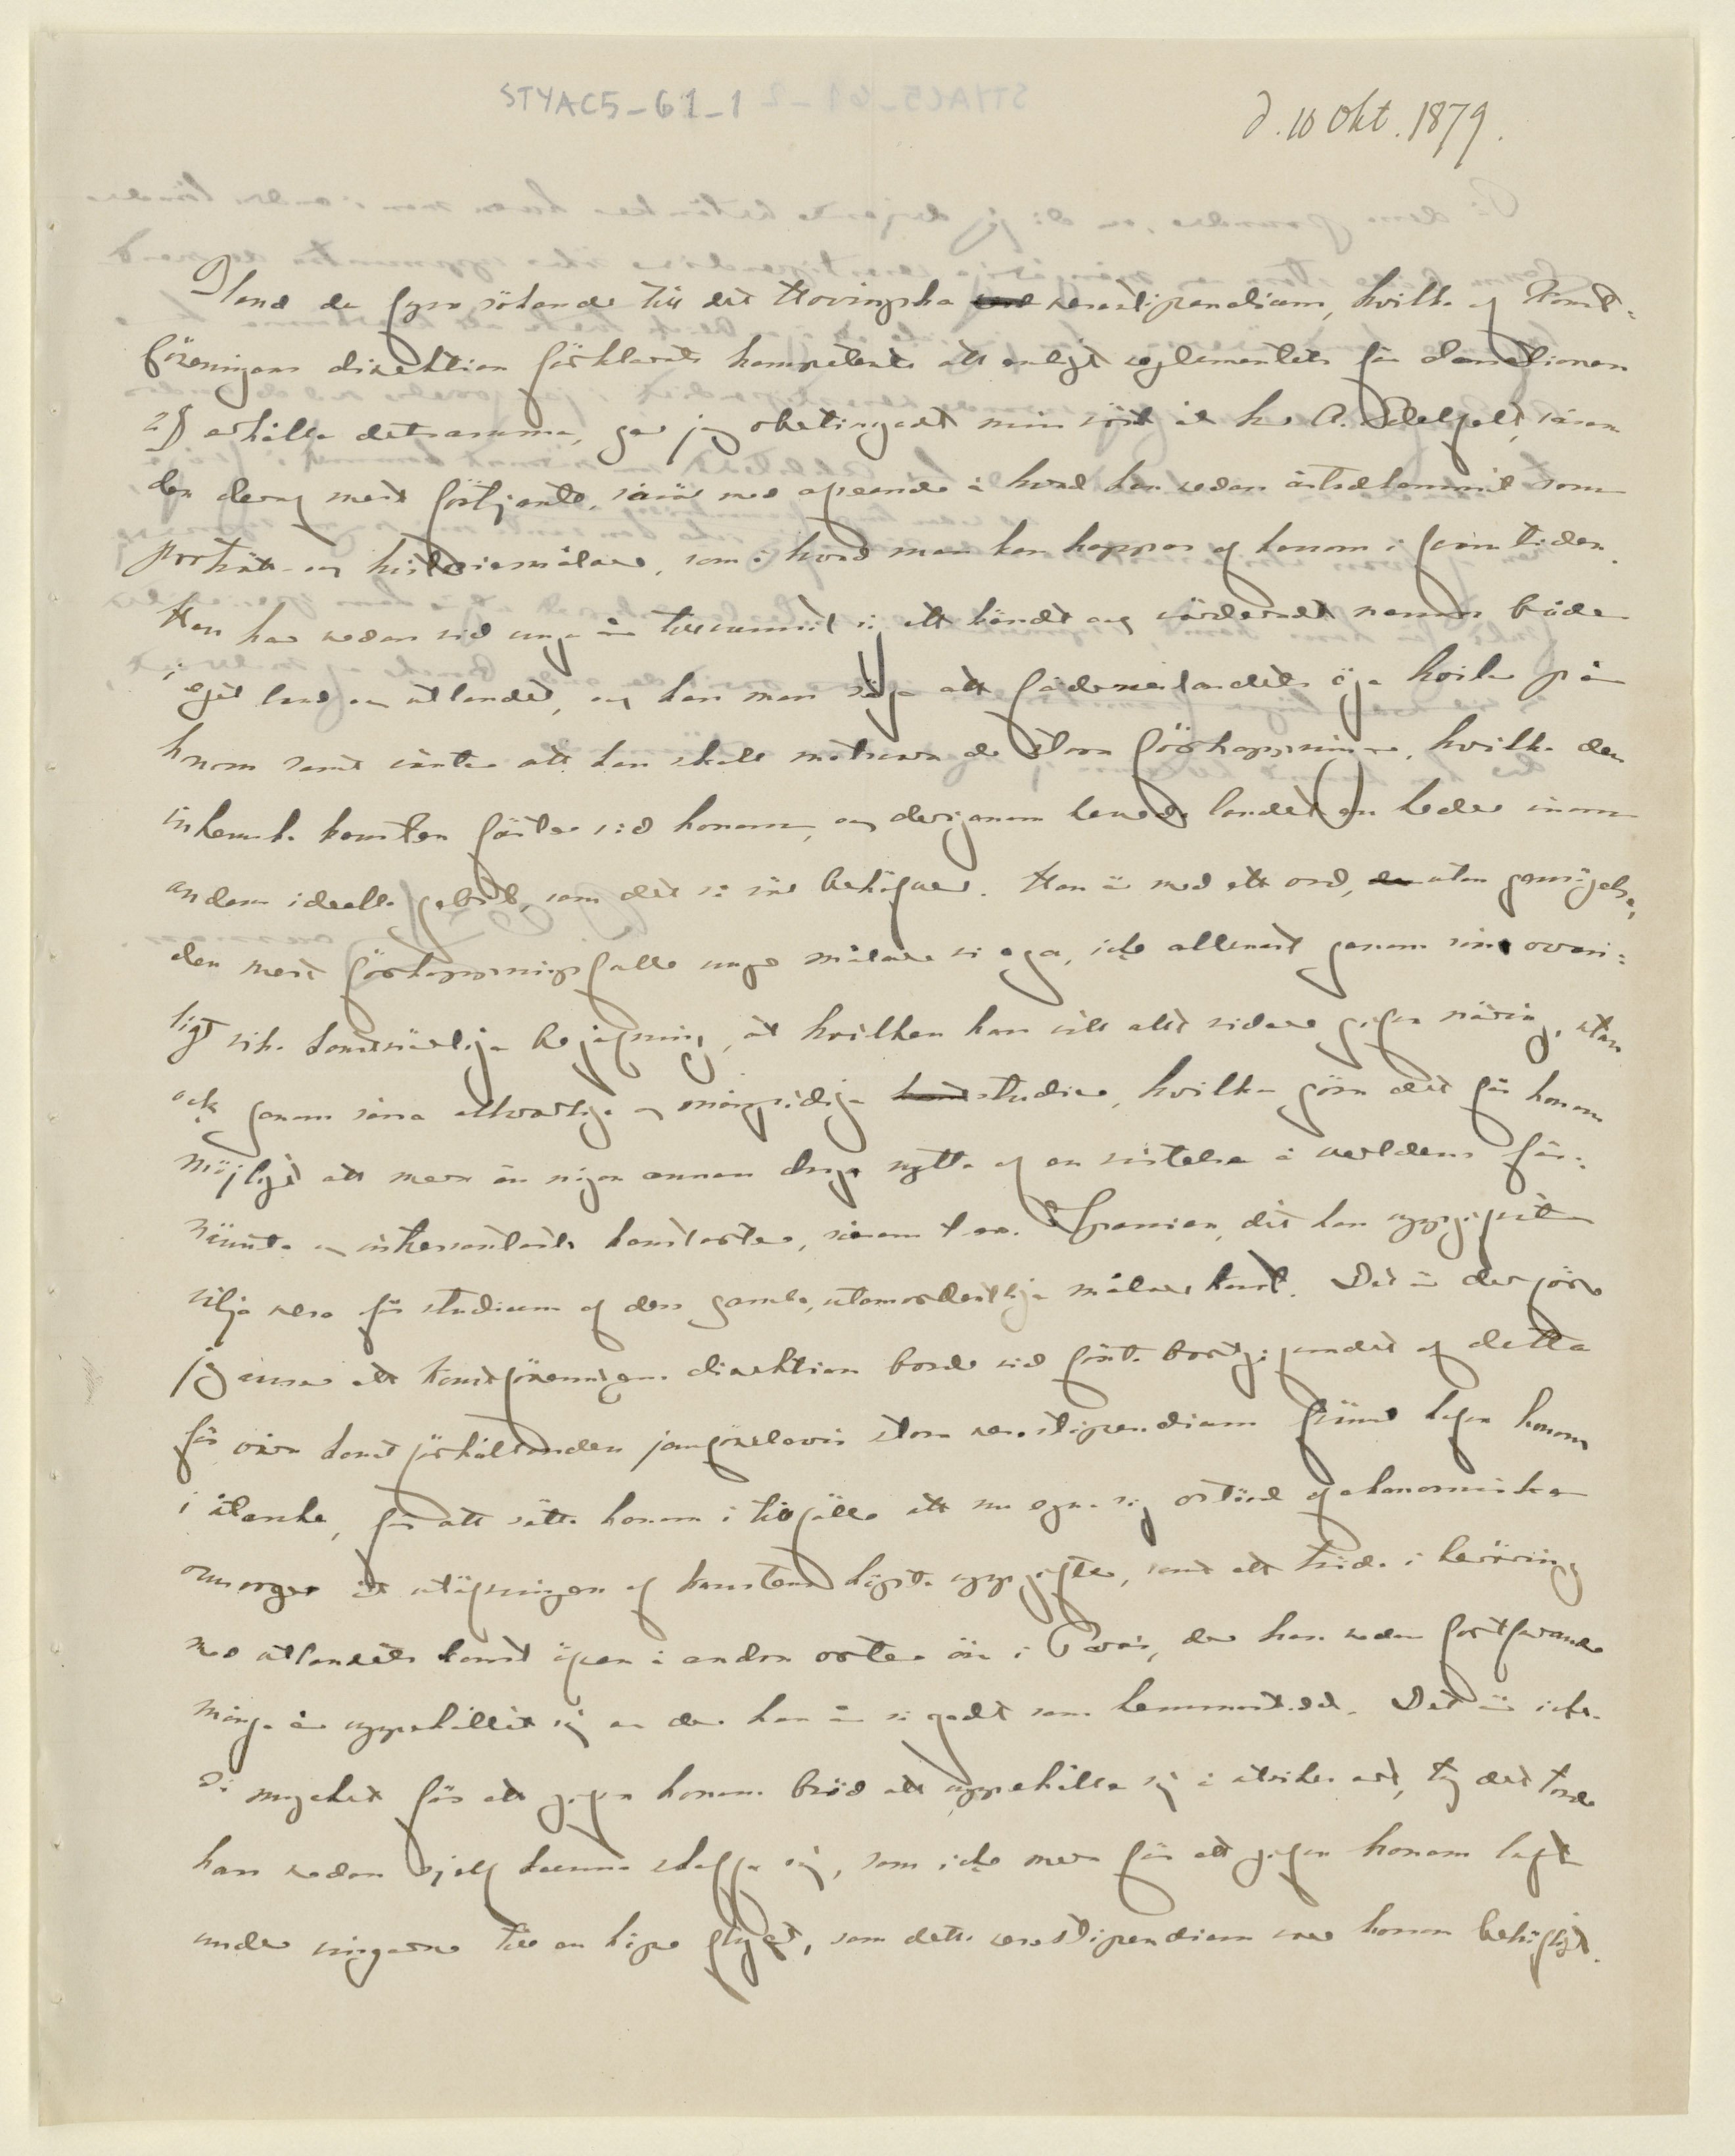 STYAC5-61-1
d. 10 Okt. 1879.
Bland de fyra sökande till det Hovingska resestipendium, hvilka af Konst-
föreningens direktion förklarats kompetenta att enligt reglementets för donationen
2 § erhålla detsamma, ger jag obetingadt min röst åt hr A. Edelfelt, såsom
den deraf mest förtjente, såväl med afseende å hvad han redan åstadkommit som
porträtt- och historiemålare, som å hvad man kan hoppas af honom i framtiden.
Han har redan vid unga år tillvunnit sig ett kändt och värderadt namn både
i eget land och utlandet, och kan man säga att fäderneslandets öga hvilar på
honom samt väntar att han skall motsvara de stora förhoppningar, hvilka den
inhemska konsten fäster vid honom, och derigenom bereda landet en heder inom
andens ideella gebit, som det så väl behöfver. Han är med ett ord, utan gensägelse,
den mest förhoppningsfulle unge målare vi ega, icke allenast genom sin ovan-
ligt rika konstnärliga begåfning, åt hvilken han vill allt vidare gifva näring, utan
ock genom sina allvarliga och mångsidiga studier, hvilka göra det för honom
möjligt att mera än någon annan draga nytta af en vistelse å verldens för-
nämsta och intressantaste konstorter, såsom t. ex. Spanien, dit han uppgifvit sig
vilja resa för studium af dess gamla, utomordentliga målarekonst. Det är derföre
jag anser att Konstföreningens direktion borde vid första bortgifvandet af detta
för våra konstförhållanden jemförelsevis stora resestipendium främst hafva honom
i åtanke, för att sätta honom i tillfälle att nu egna sig ostörd af ekonomiska
omsorger åt utöfningen af konstens högsta uppgifter, samt att träda i beröring
med utlandets konst äfven å andra orter än i Paris, der han redan fortfarande
många år uppehållit sig och der han är så godt som hemmastadd. Det är icke
så mycket för att gifva honom bröd att uppehålla sig å utrikes ort, ty det torde
han redan sjelf kunna skaffa sig, som icke mer för att gifva honom luft
under vingarne till en högre flygt, som detta resestipendium vore honom behöfligt.